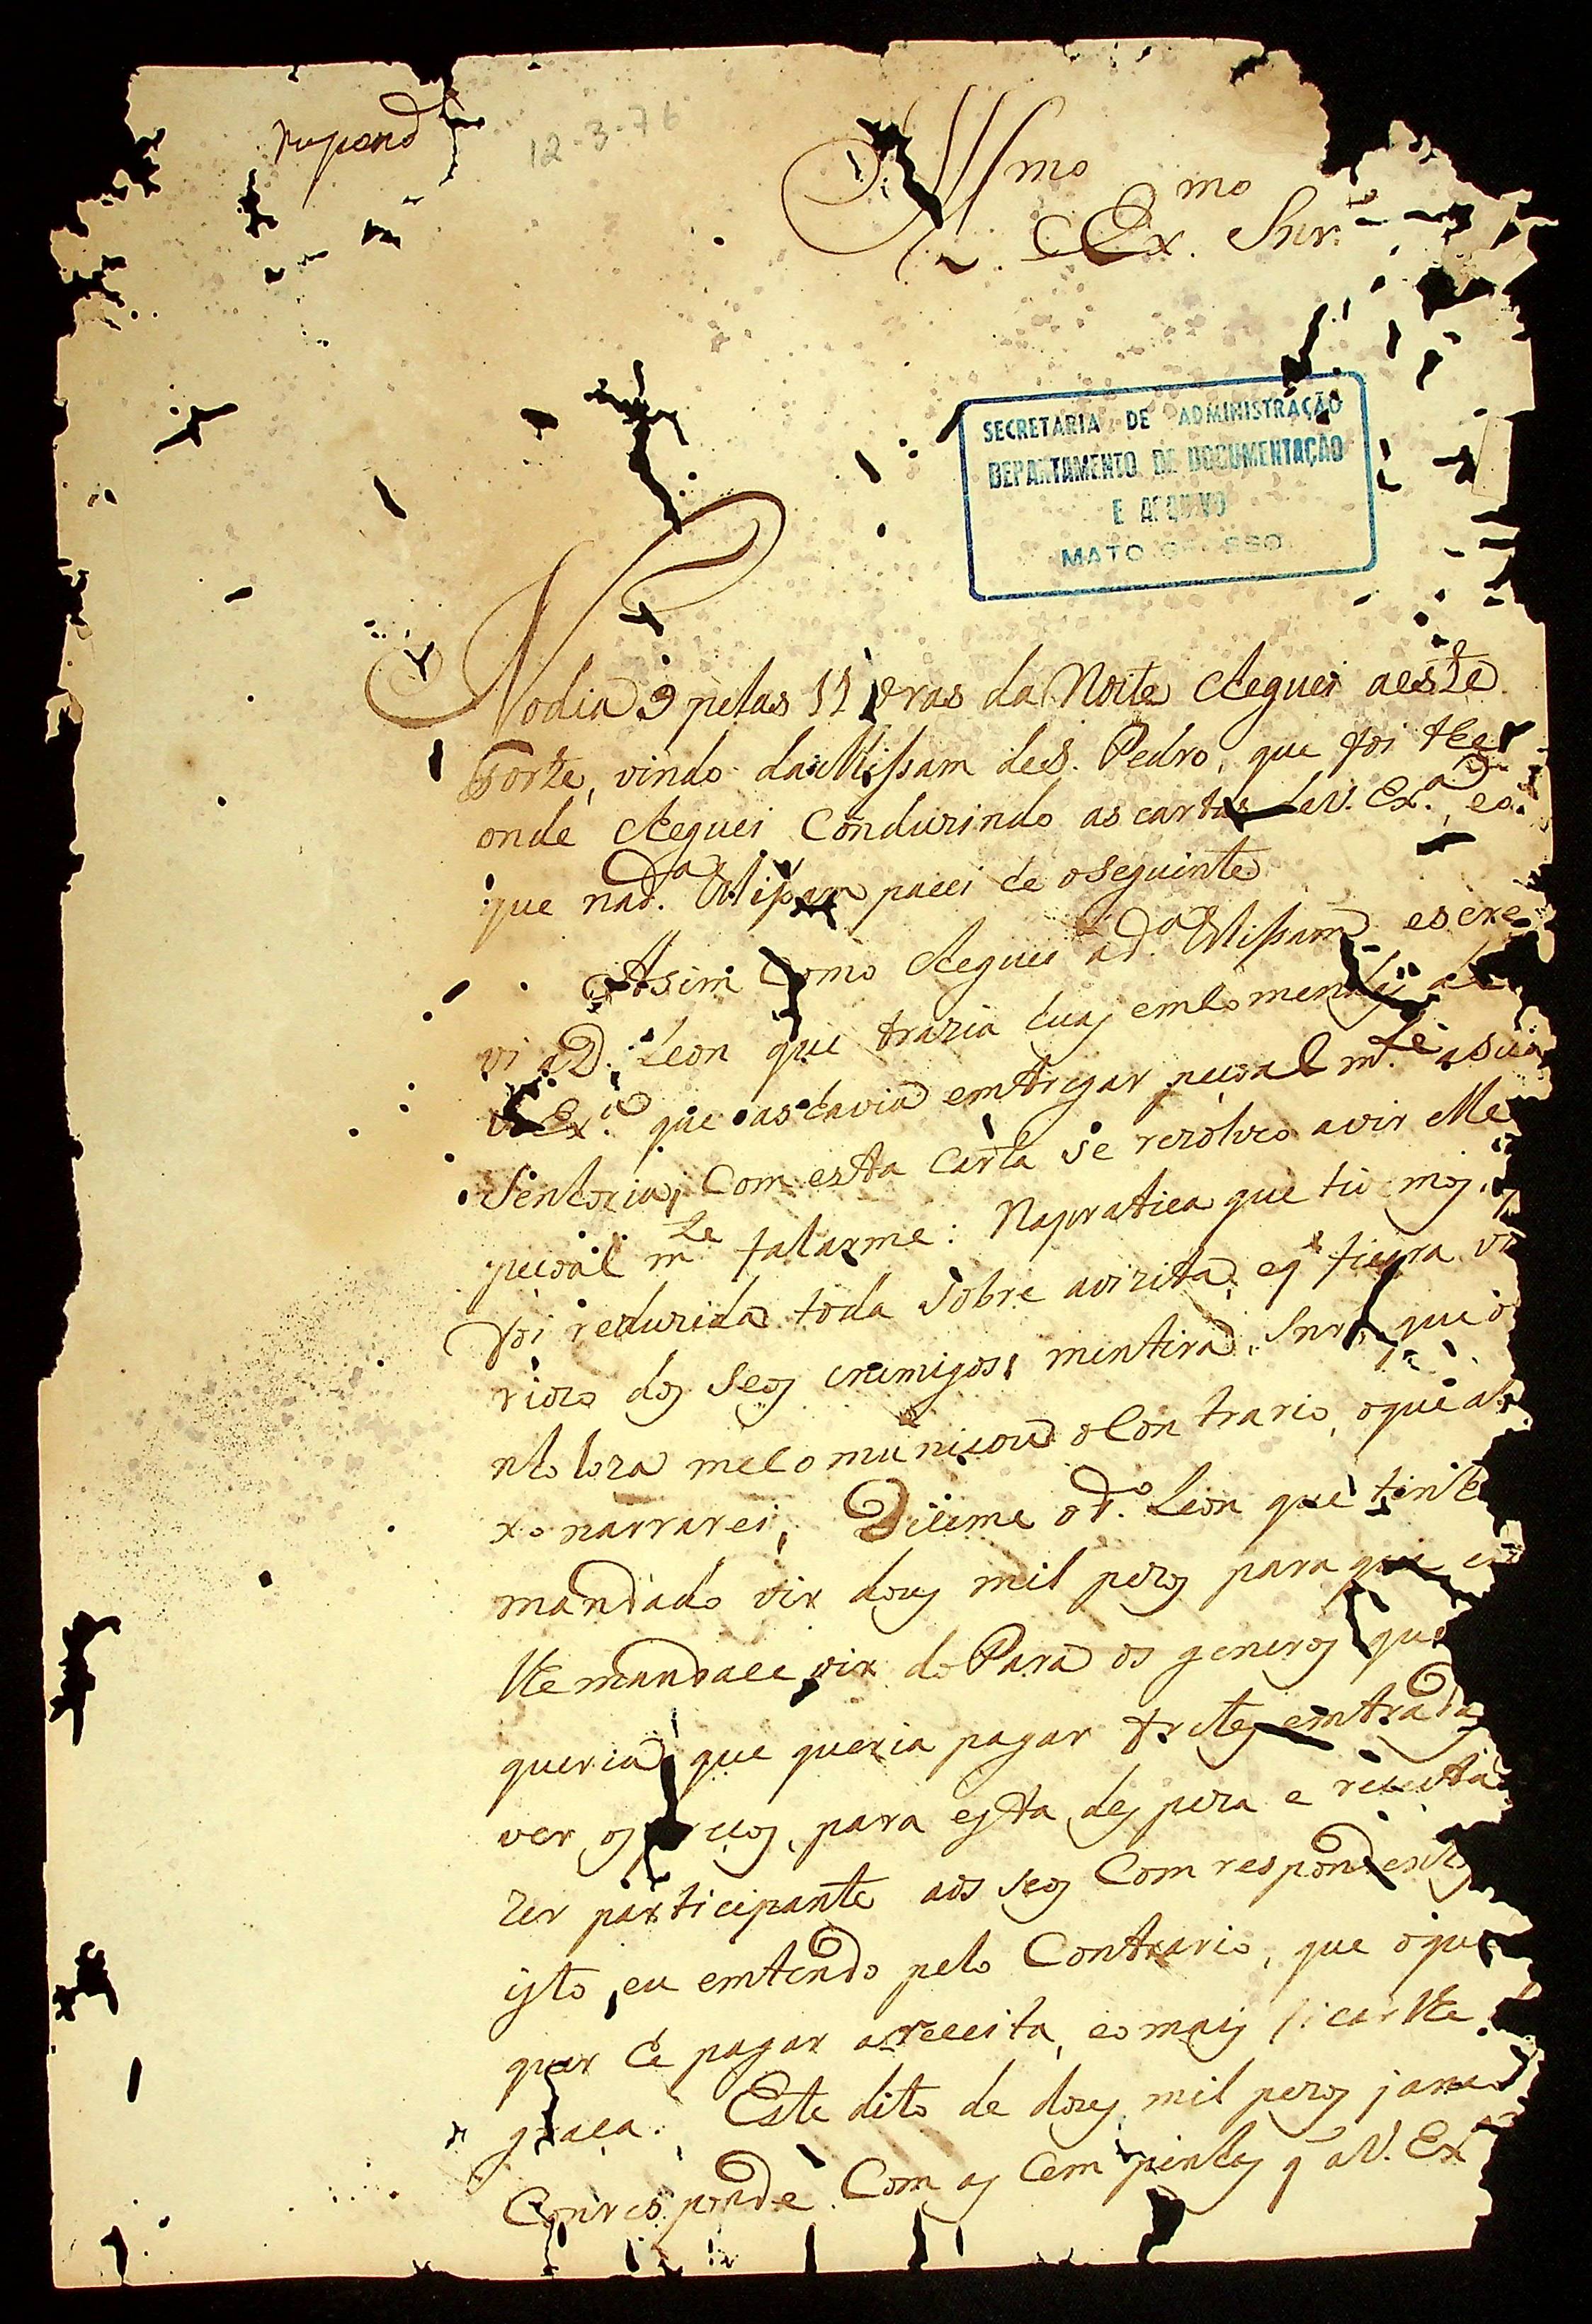 respond
12-3-76
Illmo
Exmo Snr.
SECRETARIA DE ADMINISTRAÇÃO
DEPARTAMENTO DE DOCUMENTAÇÃO
E ARQUIVO
MATO GROSSO
Nodia 9 pelas 11 oras da Noite cheguei aeste
Forte, vindo da Missam deS. Pedro, que foi the
onde cheguei Condusindo as cartas deV. Exa. eo
que nad.a Missam pacei he oseguinte
Asim como cheguei ád.a Missam escre
vi aD. Leon que trazia duas emComendas de
V. Exa. que as havia emtregar pecoal m.te asua
Senhoria, Com esta Carta se rezolveo avir Me
pecoal m.te falarme: Napratica que tivemos,
foi redusida toda sobre avizita, eq fiera
dos Seos enemigos, mentira Snr. que o
melomunicou oContrario, oque aba
xo narrarei, Diceme od.o Leon que tinha
mandado vir dous mil pezos para que eu
lhe mandace vir do Pará os generos que
queria que queria pagar fretes emtradas
ver os para esta despeza e receita
zer participante aos seos Comrespondentes
isto, eu emtendo pelo Contrario, que oque
quer he pagar a receita, eomais ficarlhe
graça. Este dito de dous mil pezos ja
Conresponde Com as Cem pinhas q aV. Exa